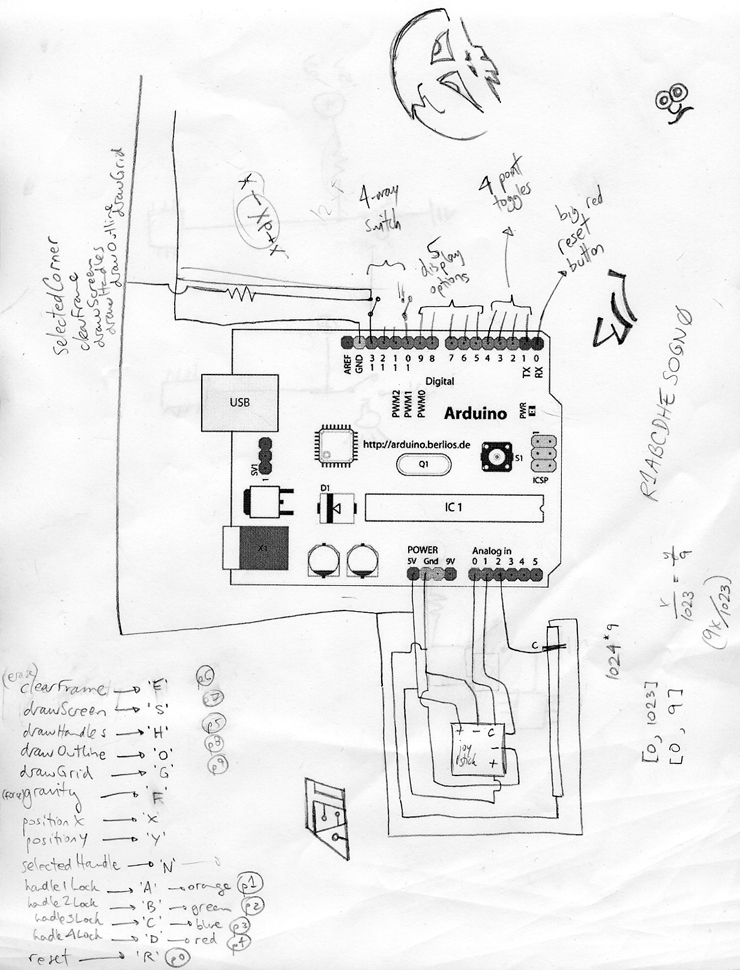 SelectedCorner
clearFrame
drawScreen
drawHandles
drawOutline
drawGrid
4-way
switch
5
display
4 point
toggles
big red
reset
button
AREF
GND
13
12
11
10
9
8
7
6
5
4
3
2
1
0
TX
RX
Digital
PWM2
PWM1
PWM0
Arduino
PWR
USB
http://arduino.berlios.de
SV1
1
Q1
S1
1
ICSP
D1
IC 1
X1
POWER
5V Gnd 9V
Analog in
0 1 2 3 4 5
+ - C
joy
stick
-
+
C
R1ABCDHESOGN0
x/1023 = y/9
(9x/1023)
1024*9
[0, 1023]
[0, 9]
(erase)
clearFrame → 'E' p6
drawScreen → 'S' p7
drawHandles → 'H' p5
drawOutline → 'O' p8
drawGrid → 'G' p9
(force) gravity → 'F'
positionX → 'X'
positionY → 'Y'
selectedHandle → 'N'
hadle1Lock → 'A' → orange p1
hadle2Lock → 'B' → green p2
hadle3Lock → 'C' → blue p3
hadle4Lock → 'D' → red p4
reset → 'R' p0